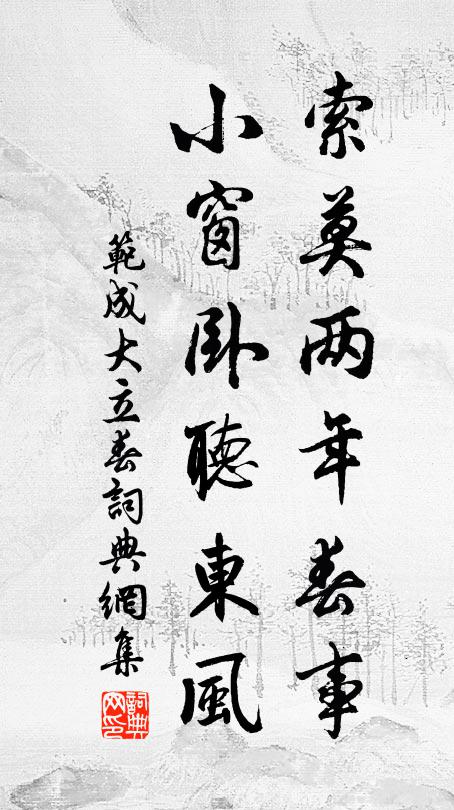 索莫两年春事
小窗卧聽東風
範成大立春詞典網集
詞典网印